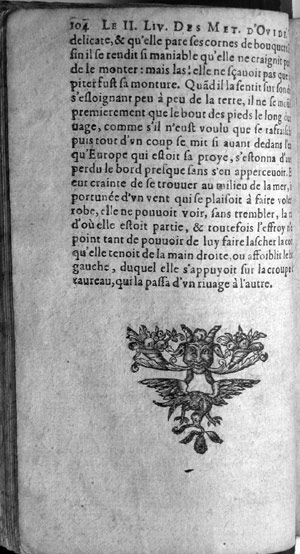 104 LE II. LIV. DES MET. D'OVIDE
delicate, & qu'elle pare ses cornes de bouquets
sin il se rendit si maniable qu'elle ne craignit
de le monter: mais las! elle ne sçauoit pas que
piter fust sa monture. Quãd il la sentit sur son
s'esloignant peu à peu de la terre, il ne se
premierement que le bout des pieds le long du
uage, comme s'il n'eust voulu que se rafraischir
puis tout d'vn coup se mit si auant dedans
qu'Europe qui estoit sa proye, s'estonna d'auoir
perdu le bord presque sans s'en apperceuoir. E
eur crainte de se trouuer au milieu de la mer,
portunée d'vn vent qui se plaisoit à faire voler
robe, elle ne pouuoit voir, sans trembler, la
d'où elle estoit partie, & toutefois l'effroy n
point tant de pouuoir de luy faire lascher la cor
qu'elle tenoit de la main droite, ou affoiblir le
gauche, duquel elle s'appuyoit sur la croupe
taureau, qui la passa d'vn riuage à l'autre.